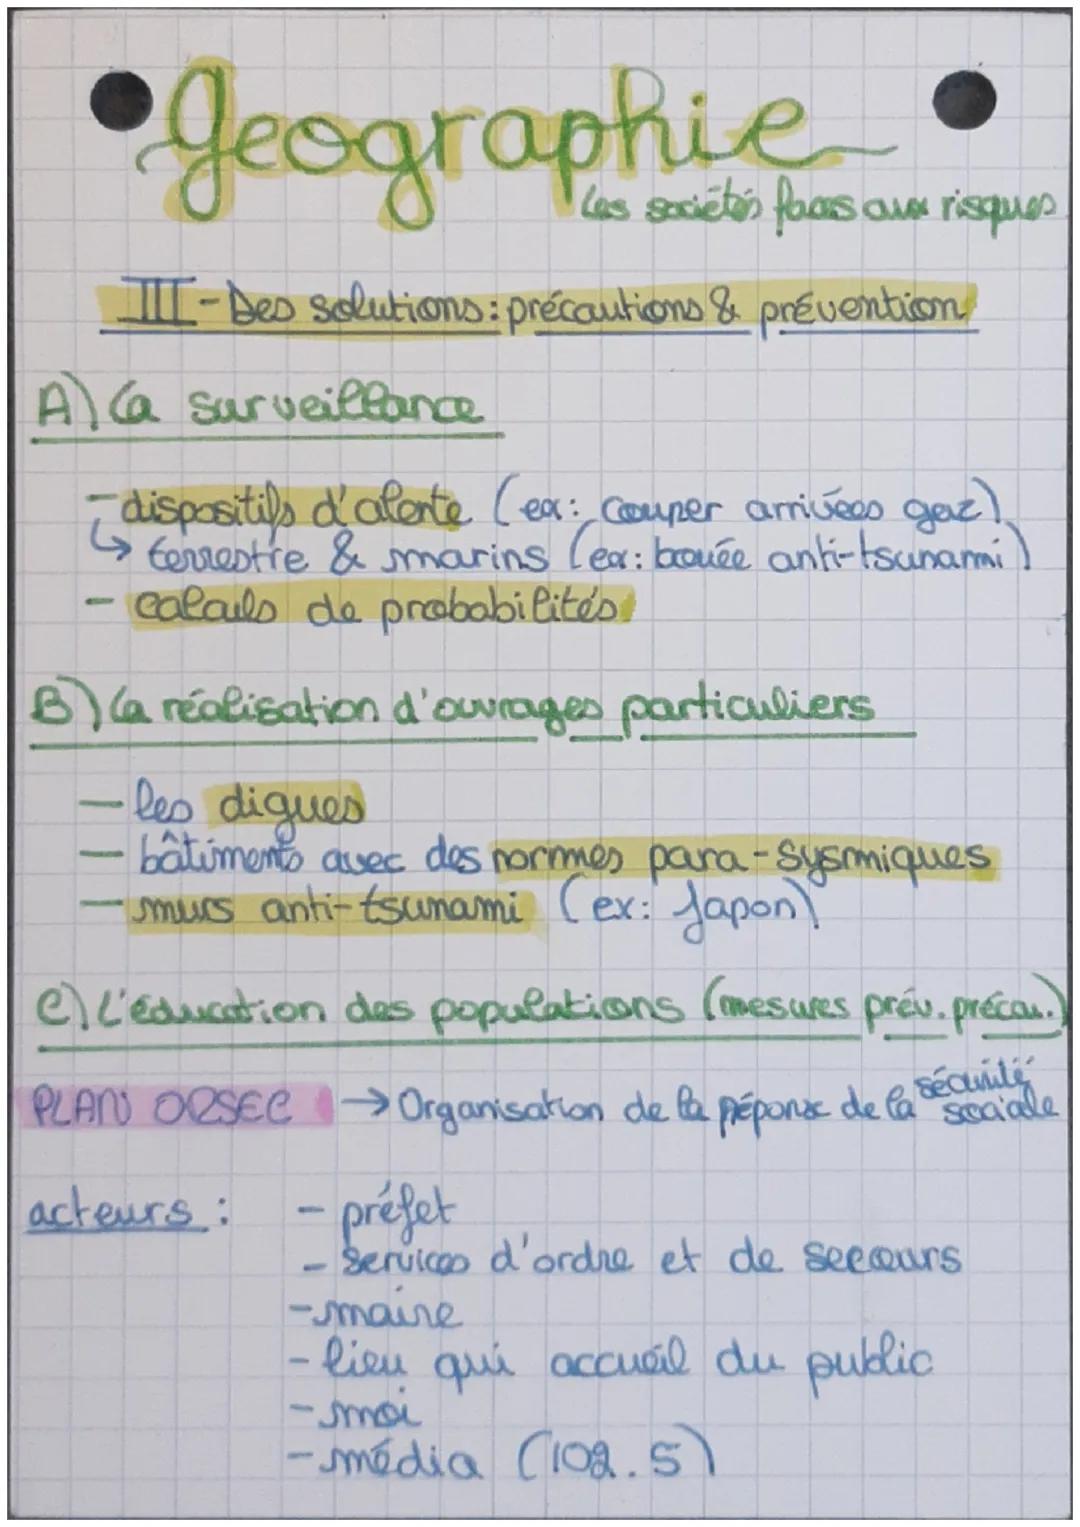 Geographie
Les sociétés faces aux risques
III - Des solutions : précautions & prévention
A) La surveillance
- dispositifs d'alerte (ex: couper arrivées gaz)
↳ terrestre & marins (ex: bouée anti-tsunami)
- calculs de probabilités
B) La réalisation d'ouvrages particuliers
- les digues
- bâtiments avec des normes para-sysmiques
- murs anti-tsunami (ex: Japon)
C) L'éducation des populations (mesures prév. précau.)
PLAN ORSEC → Organisation de la réponse de la sécurité sociale
acteurs : - préfet
- services d'ordre et de secours
- maire
- lieu qui accueil du public
- moi
- média (102.5)